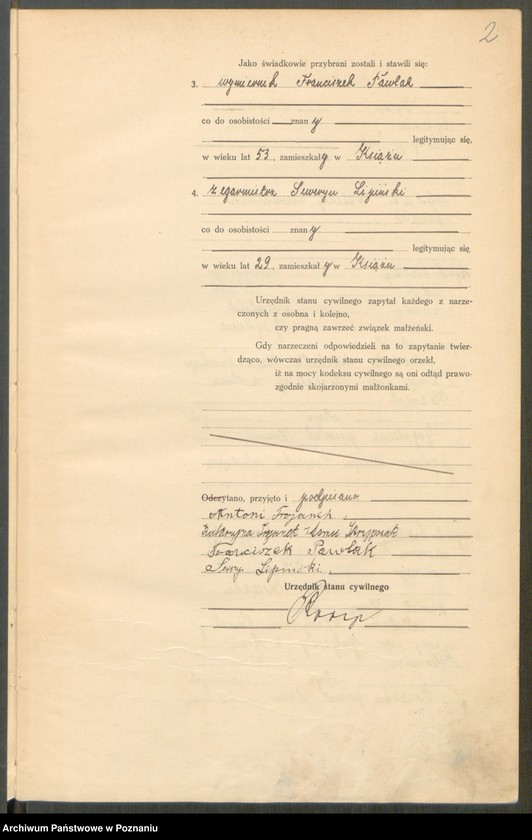 2
Jako świadkowie przybrani zostali i stawili się:
3. wymiernik Franciszek Pawlak
co do osobistości znan y
legitymując się,
w wieku lat 53, zamieszkał y w Książu
4. zegarmistrz Seweryn Lipiński
co do osobistości znan y
legitymując się
w wieku lat 29, zamieszkał y w Książu
Urzędnik stanu cywilnego zapytał każdego z narze-
czonych z osobna i kolejno,
czy pragną zawrzeć związek małżeński.
Gdy narzeczeni odpowiedzieli na to zapytanie twier-
dząco, wówczas urzędnik stanu cywilnego orzekł,
iż na mocy kodeksu cywilnego są oni odtąd prawo-
zgodnie skojarzonymi małżonkami.
Odczytano, przyjęto i podpisano
Antoni Trojanek,
Katarzyna Trojanek z domu
Franciszek Pawlak
Sewy Lipinski.
Urzędnik stanu cywilnego
Archiwum Państwowe w Poznaniu